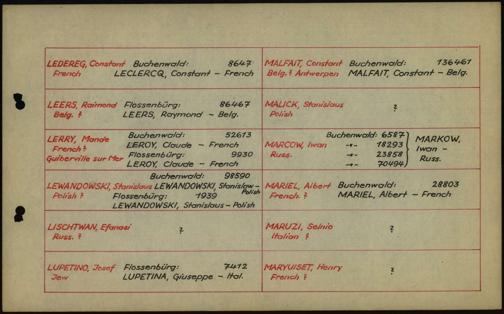 LEDEREG, Constant Buchenwald: 8647
French LECLERCQ, Constant - French
LEERS, Raimond Flossenbürg: 86467
Belg. ? LEERS, Raymond - Belg.
LERRY, Monde Buchenwald: 52613
French ? LEROY, Claude - French
Guiberville sur Mer Flossenbürg: 9930
LEROY, Claude - French
Buchenwald: 98590
LEWANDOWSKI, Stanislaus LEWANDOWSKI, Stanislaw - Polish
Polish ? Flossenbürg: 1939
LEWANDOWSKI, Stanislaus - Polish
LISCHTWAN, Efanasi ?
Russ. ?
LUPETINO, Josef Flossenbürg: 7412
Jew LUPETINA, Giuseppe - Ital.
MALFAIT, Constant Buchenwald: 136461
Belg. ? Antwerpen MALFAIT, Constant - Belg.
MALICK, Stanislaus ?
Polish
Buchenwald: 6587
MARCOW, Iwan -"- 18293 MARKOW,
Russ. -"- 23858 Iwan -
-"- 70494 Russ.
MARIEL, Albert Buchenwald: 28803
French ? MARIEL, Albert - French
MARUZI, Selnio ?
Italian ?
MARYUISET, Henry ?
French ?